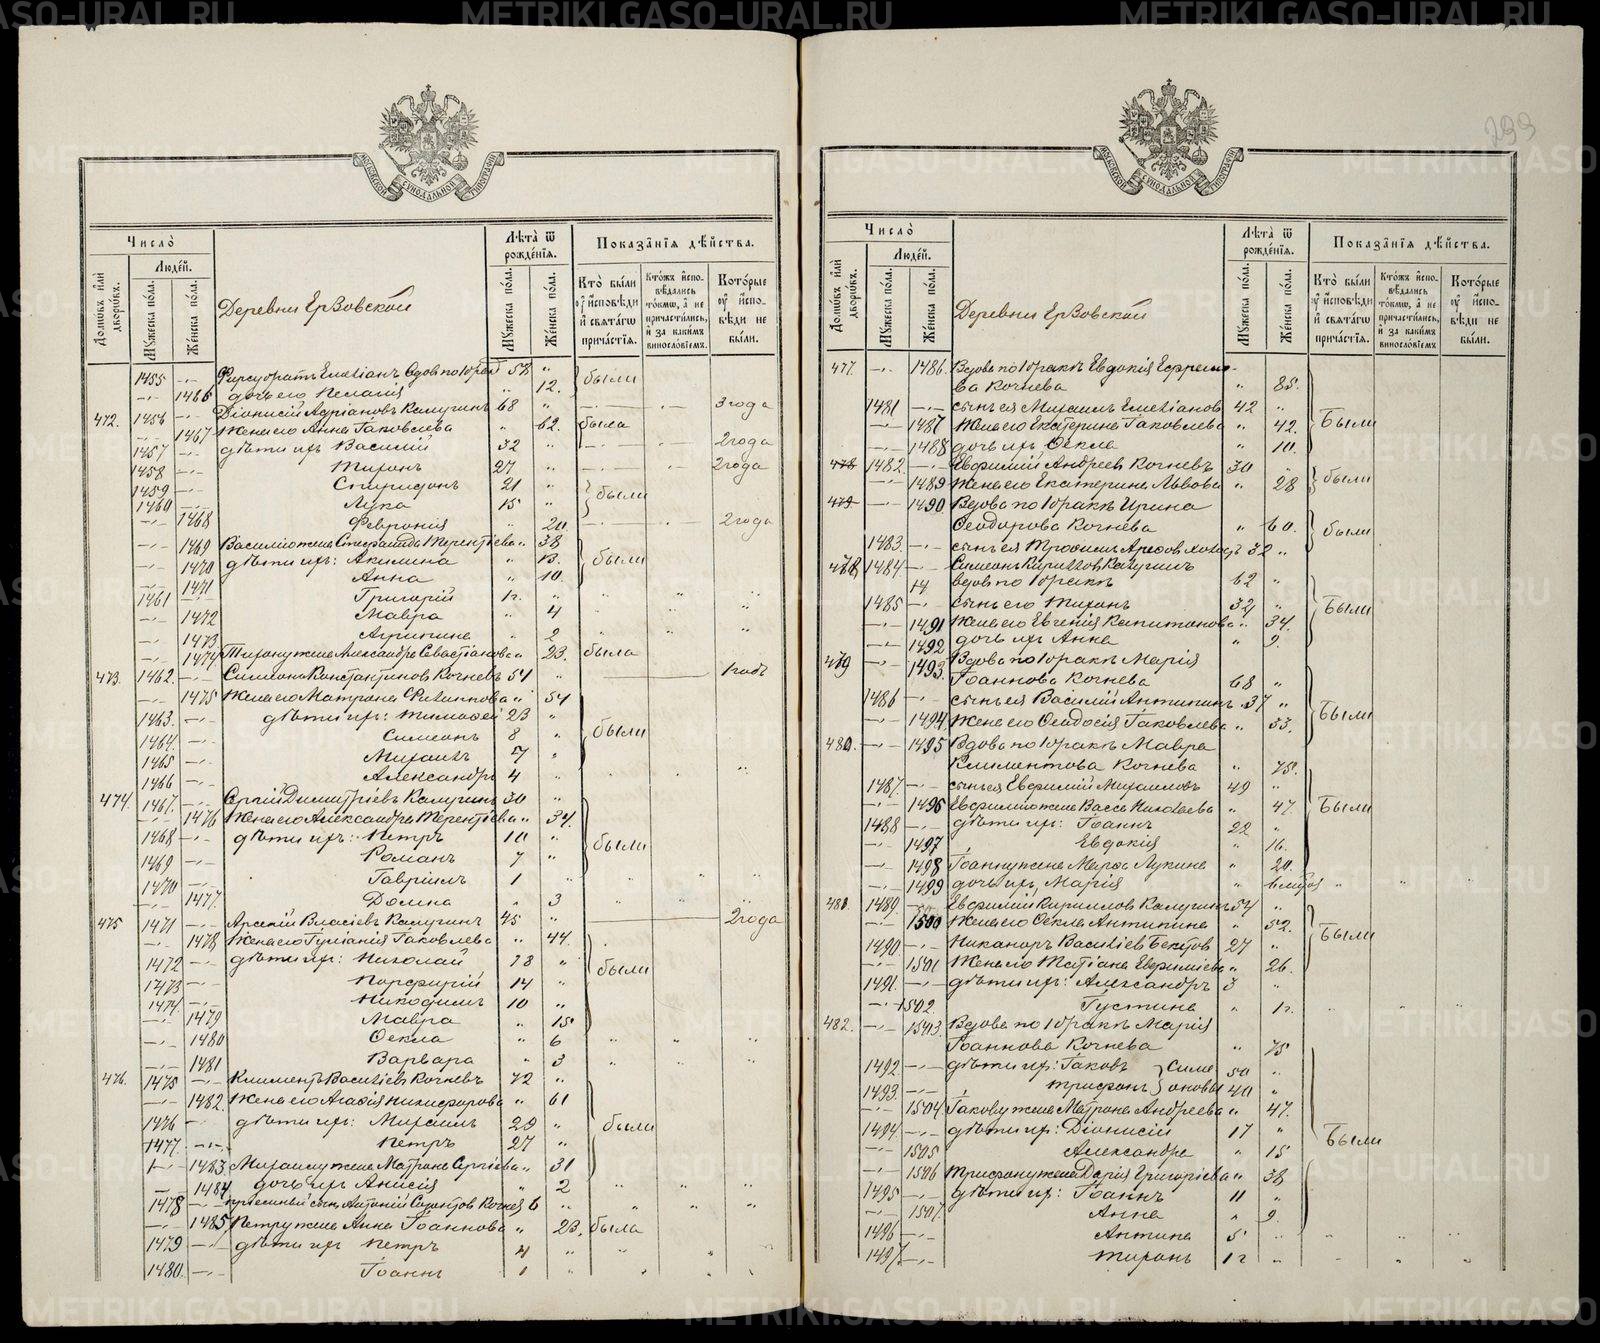 METRIKI.GASO-URAL.RU
299
МОСКОВСКОЙ СѴНОДАЛЬНОЙ ТИПОГРАФІИ
Число̀
Людей.
Домѡвъ и҆лѝ дворѡвъ.
Мꙋжеска по́ла.
Же́нска по́ла.
Деревни Ерзовской
Лѣта̀ ѿ рожде́нїѧ.
Мꙋжеска по́ла.
Же́нска по́ла.
Показа́нїѧ дѣ́йства.
Кто̀ бы́ли ᲂу҆ и҆сповѣди и҆ свѧта́гѡ прича́стїѧ.
Кто́жъ и҆сповѣдались то́кмѡ, а҆ не причасти́лись, и҆ за каки́мъ виносло́вїемъ.
Кото́рые ᲂу҆ и҆сповѣди не бы́ли.
1455 Емелiанъ вдовъ по 1 бракѣ 58
1466 дочь его Пелагія 12. были
472. 1456 Діонисій Адріановъ Калугинъ 68 3 года
1467 Жена его Анна Іаковлева 62. была
1457 дѣти ихъ Василій 32 2 года
1458 Тихонъ 27 2 года
1459 Спиридонъ 21
1460 Лука 15 были
1468 Февронія 20 2 года
1469 Василію жена Стефанида Терентіева 38
1470 дѣти ихъ: Акилина 13. были
1471 Анна 10.
1461 Григорій 1 г.
1472 Мавра 4
1473 Агрипина 2
1474 Тихону жена Александра Севастіанова 23. была
473. 1462. Симеонъ Константиновъ Кочневъ 54 1 годъ
1475 Жена его Матрона 54
1463. дѣти ихъ: Тимофей 23
1464. Симеонъ 8 были
1465 Михаилъ 7
1466 Александръ 4
474. 1467. Сергій Димитріевъ Калугинъ 30
1476 Жена его Александра Терентіева 34.
1468 дѣти ихъ: Петръ 10 были
1469 Романъ 7
1470 Гавріилъ 1
1477. Домна 3
475 1471 Арсеній Власіевъ Калугинъ 45 2 года
1478 Жена его Іуліанія Іаковлева 44.
1472 дѣти ихъ: Николай 18 были
1473 Порфирій 14
1474. Никодимъ 10
1479 Мавра 15
1480 Ѳекла 6
1481 Варвара 3
476. 1475 Климентъ Василіевъ Кочневъ 72
1482. Жена его Агафія Никифорова 61
1476 дѣти ихъ: Михаилъ 29 были
1477. Петръ 27
1483 Михаилу жена Матрона Сергіева 31
1484 дочь ихъ Анисія 2
1478 пріемный сынъ Антоній Кочневъ 6
1485 Петру жена Анна Іоаннова 23. была
1479 дѣти ихъ Петръ 4
1480. Іоаннъ 1
Число̀
Людей.
Домѡвъ и҆лѝ дворѡвъ.
Мꙋжеска по́ла.
Же́нска по́ла.
Деревни Ерзовской
Лѣта̀ ѿ рожде́нїѧ.
Мꙋжеска по́ла.
Же́нска по́ла.
Показа́нїѧ дѣ́йства.
Кто̀ бы́ли ᲂу҆ и҆сповѣди и҆ свѧта́гѡ прича́стїѧ.
Кто́жъ и҆сповѣдались то́кмѡ, а҆ не причасти́лись, и҆ за каки́мъ виносло́вїемъ.
Кото́рые ᲂу҆ и҆сповѣди не бы́ли.
477. 1486. Вдова по 1 бракѣ Евдокія Ефремо-
ва Кочнева 85.
1481 сынъ ея Михаилъ Емеліановъ 42
1487 Жена его Екатерина Іаковлева 42. Были
1488 дочь ихъ Ѳекла 10.
478 1482. Евфимій Андреевъ Кочневъ 30
1489 Жена его Екатерина Львова 28 были
479 1490 Вдова по 1 бракѣ Ирина
Ѳеодорова Кочнева 60. были
1483. сынъ ея Трофимъ холостъ 32
478 1484 Симеонъ Кирилловъ Калугинъ
вдовъ по 1 бракѣ 62
1485 сынъ его Тихонъ 32 Были
1491 Жена его Евгенія Капитонова 34.
1492 дочь ихъ Анна 2.
479 1493. Вдова по 1 бракѣ Марія
Іоаннова Кочнева 68
1486 сынъ ея Василій Антипинъ 37 Были
1494 Жена его Ѳеодосія Іаковлева 33.
480. 1495 Вдова по 1 бракѣ Мавра
Климентова Кочнева 75.
1487. сынъ ея Евфимій Михаиловъ 49
1496 Евфимію жена Васса Николаева 47. Были
1488 дѣти ихъ: Іоаннъ 22
1497 Евдокія 16.
1498 Іоанну жена Марфа Лукина 20.
1499 дочь ихъ Марія
481. 1489 Евфимій Кирилловъ Калугинъ 54
1500 Жена его Ѳекла Антипина 52. Были
1490 Никаноръ Василіевъ 27
1501 Жена его Татіана Евфиміева 26.
1491. дѣти ихъ: Александръ 3
1502. Іустина 1 г.
482. 1503. Вдова по 1 бракѣ Марія
Іоаннова Кочнева 75
1492 дѣти ихъ: Іаковъ Симе 50
1493. Трифонъ оновы 40
1504 Іакову жена Матрона Андреева 47.
1494 дѣти ихъ: Діонисій 17 Были
1505 Александра 15
1506 Трифону жена Дарія Григоріева 38
1495 дѣти ихъ: Іоаннъ 11
1507. Анна 9.
1496 Антипа 5
1497. Тихонъ 1 г.